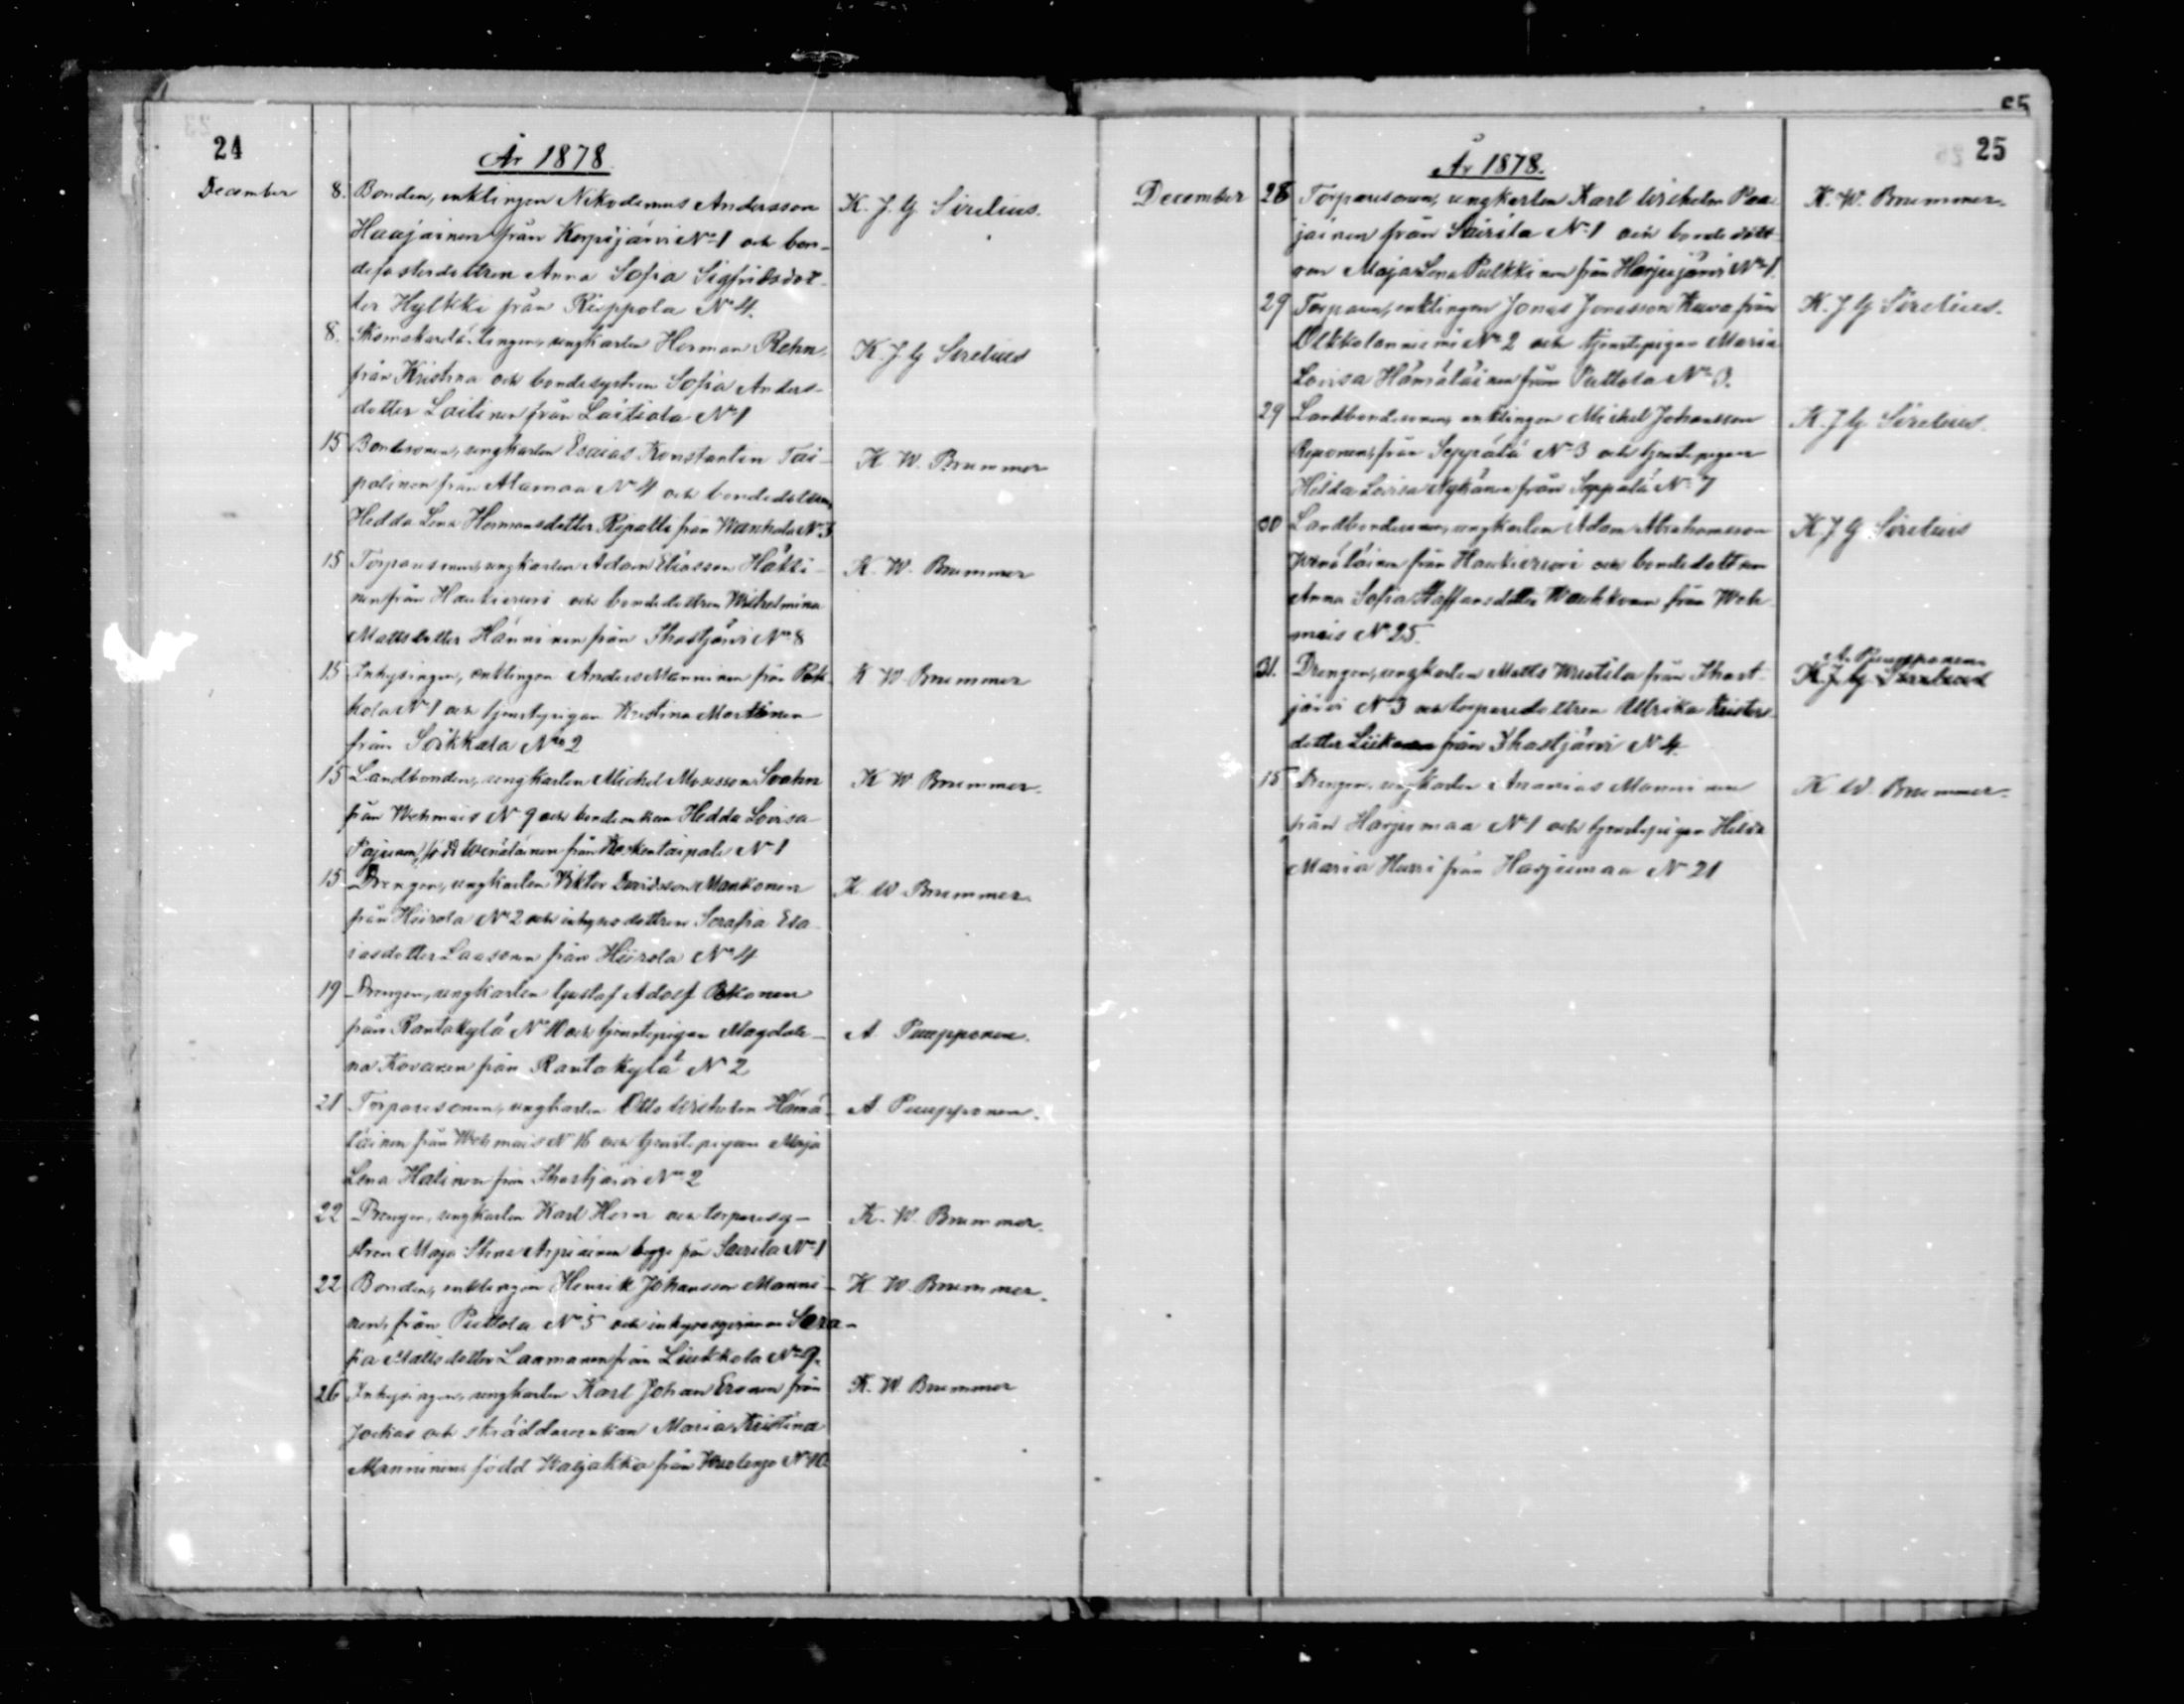 24
År 1878.
December
8. Bonden, enklingen Nikodemus Andersson
Haajainen från Korpijärvi No 1 och bon-
defosterdottren Anna Sofia Sigfridsdot-
ter Hyltkki från Rieppola No 4.
K. J. G. Sirelius.
8. Skomakarlärlingen, ungkarlen Herman Rehn,
från Kristina och bondesystren Sofia Anders-
dotter Laitinen från Laitiala No 1
K. J G Sirelius
15 Bondesonen, ungkarlen Esaias Konstantin Tai-
palinen från Alamaa No 4 och bondedottren,
Hedda Lena Hermansdotter Repatti från Wanhala No 3
K W. Brummer
15 Torparesonen, ungkarlen Adam Eliasson Häkki-
nen från Haukivuori och bondedottren Wilhelmina
Mattsdotter Hänninen från Ihastjärvi No 8
K. W. Brummer
15 Inhysingen, enklingen Anders Manninen från
kola No 1 och tjenstepigan Kristina Marttinen
från Soikkala No 2
K W Brummer
15 Landbonden, ungkarlen Michel Mosesson Svahn
från Wehmais No 9 och bondeenkan Hedda Lovisa
Pajunen, född Wenäläinen från Koskentaipale No 1
K W Brummer.
15 Drengen, ungkarlen Viktor Davidsson Mankonen
från Hiirola No 2 och inhysesdottren Serafia Esa-
iasdotter Laasonen från Hiirola No 4
K W Brummer.
19 Drengen, ungkarlen Gustaf Adolf Pekonen
från Rantakylä No 10 och tjenstepigan Magdale-
na Kovanen från Rantakylä No 2
A Pumpponen.
21 Torparesonen, ungkarlen Otto Wilhelm Hämä-
läinen från Wehmais No 16 och tjenstepigan Maja
Lena Halinen från Ihastjärvi No 2
A Pumpponen.
22 Drengen, ungkarlen Karl Horn och torparesy-
stren Maja Stina Arpiainen begge från Sairila No 1
K. W. Brummer.
22 Bonden, enklingen Henrik Johansson Manni-
nen, från Puttola No 5 och inhysespigan Sera-
fia Mattsdotter Laamanen från Liukkola No 9.
K W Brummer.
26 Inhysingen, ungkarlen Karl Johan Eronen från
Jockas och skräddareenkan Maria Kristina
Manninen, född Harjakka från Wuolingo No 10
K. W. Brummer
25
År 1878.
December
28 Torparesonen, ungkarlen Karl Wilhelm Paa-
jainen från Sairila No 1 och bondedott-
ren Maja Lena Pulkkinen från Harjujärvi No 1.
K. W. Brummer.
29 Torparen, enklingen Jonas Jonasson Kuva från
Olkkolanniemi No 2 och tjenstepigan Maria
Lovisa Hämäläinen från Puttola No 3.
K. J G Sirelius.
29 Landbondesonen, enklingen Michel Johansson
Reponen, från Seppälä No 3 och tjenstepigan
Hilda Lovisa Nykänen från Seppälä No 7
K. J G Sirelius.
30 Landbondesonen, ungkarlen Adam Abrahamsson
Wenäläinen från Haukivuori och bondedottren
Anna Sofia Staffansdotter Wauhkonen från Weh-
mais No 25.
K. J. G Sirelius
31. Drengen, ungkarlen Matts Wristila från Ihast-
järvi No 3 och torparedottren Ullrika Kristers-
dotter Liikanen från Ihastjärvi No 4.
A. Pumpponen
K. J. G. Sirelius
15 Drengen, ungkarlen Ananias Manninen
från Harjumaa No 1 och tjenstepigan Hilda
Maria Hurri från Harjumaa No 21
K W. Brummer.